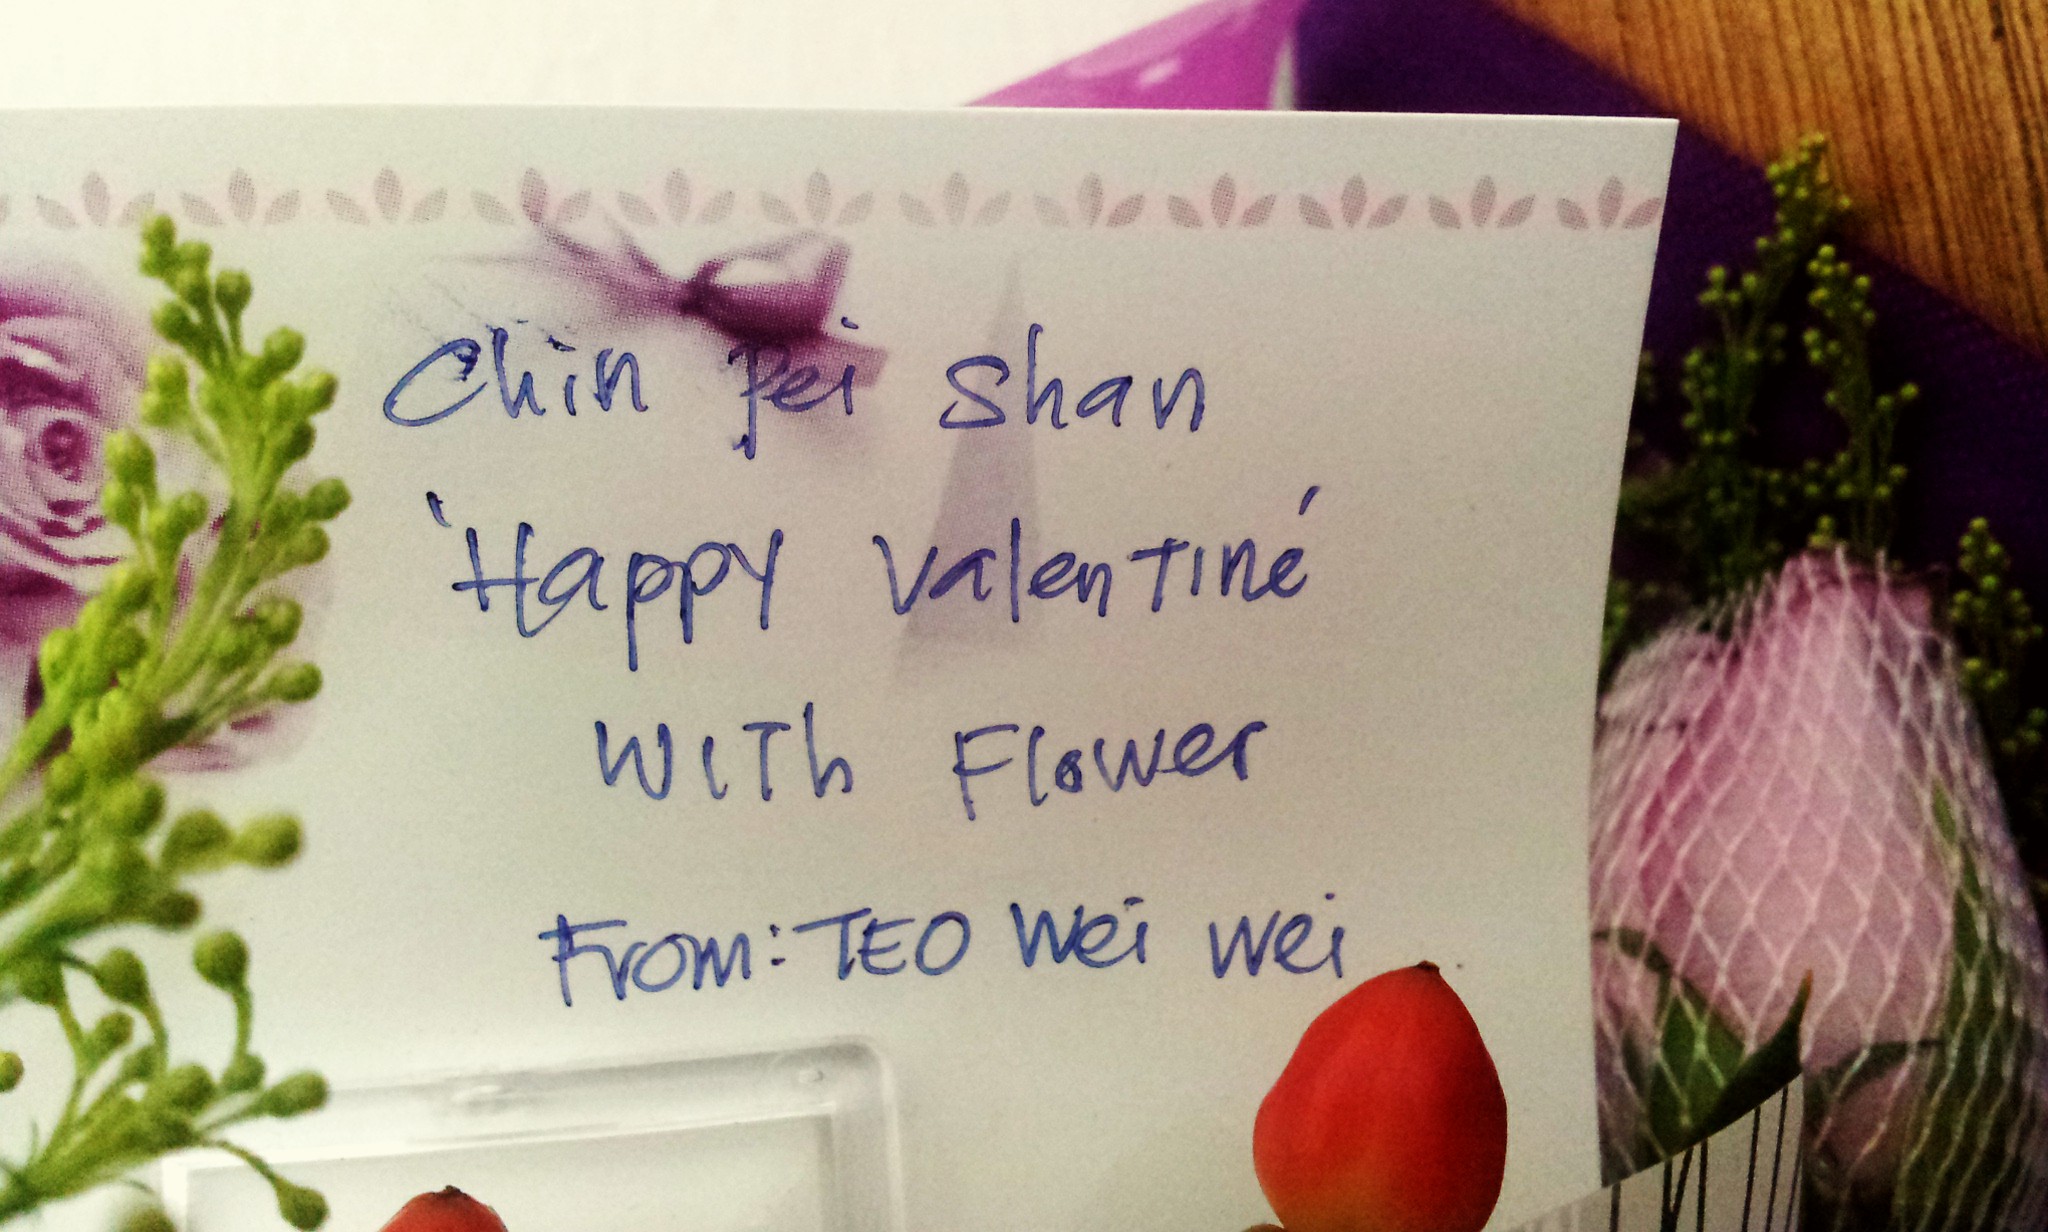 Chin Pei Shan
'Happy Valentine'
With Flower
From: TEO Wei Wei